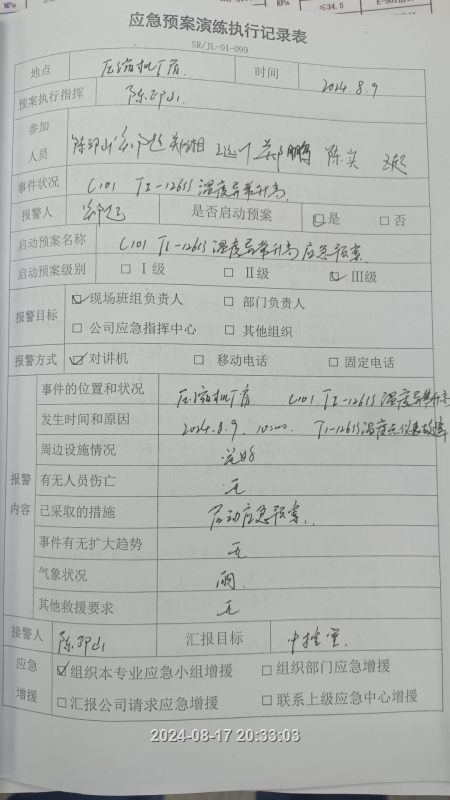 MPa
KPa
≤34.5
应急预案演练执行记录表
SR/JL-01-099
地点 压缩机厂房 时间 2024.8.9
预案执行指挥
参加人员 陈实
事件状况 C101 TI-1261S 温度异常升高
报警人 是否启动预案 ☑是 □否
启动预案名称 C101 TI-1261S 温度异常升高应急预案
启动预案级别 □Ⅰ级 □Ⅱ级 ☑Ⅲ级
报警目标 ☑现场班组负责人 □部门负责人
□公司应急指挥中心 □其他组织
报警方式 ☑对讲机 □移动电话 □固定电话
报警内容 事件的位置和状况 压缩机厂房 C101 TI-1261S 温度异常升高
发生时间和原因 2024.8.9. 10:00 TI-1261S温度点仪表故障
周边设施情况 完好
有无人员伤亡 无
已采取的措施 启动应急预案
事件有无扩大趋势 无
气象状况 雨
其他救援要求 无
接警人 汇报目标 中控室
应急增援 ☑组织本专业应急小组增援 □组织部门应急增援
□汇报公司请求应急增援 □联系上级应急中心增援
2024-08-17 20:33:03